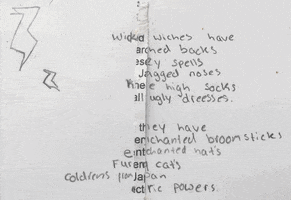 Wicked wiches have
arched backs
easy spells
Jagged noses
Knee high socks
all ugly dreesses.
they have
enchanted broomsticks
eintchanted hats
Furend cat's
coldrens from Japan
electric powers.